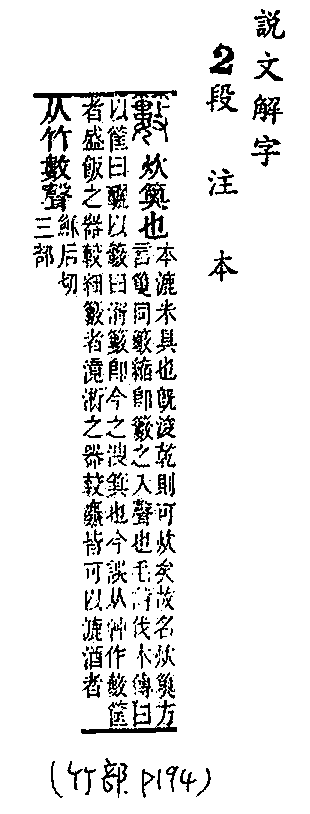 說文解字
2段注本
炊䉛也本漉米具也旣浚乾則可炊矣故名炊䉛方
言䉛同籔縮卽籔之入聲也毛詩伐木傳曰
以筐曰釃以籔曰湑籔卽今之溲箕也今誤从艸作藪筐
者盛飯之器較細籔者漉淅之器較麤皆可以漉酒者
从竹數聲穌后切
三部
(竹部 p194)